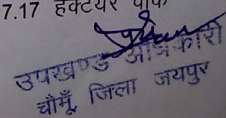 7.17 हेक्टेयर
उपखण्ड अधिकारी
चौमूँ, जिला जयपुर